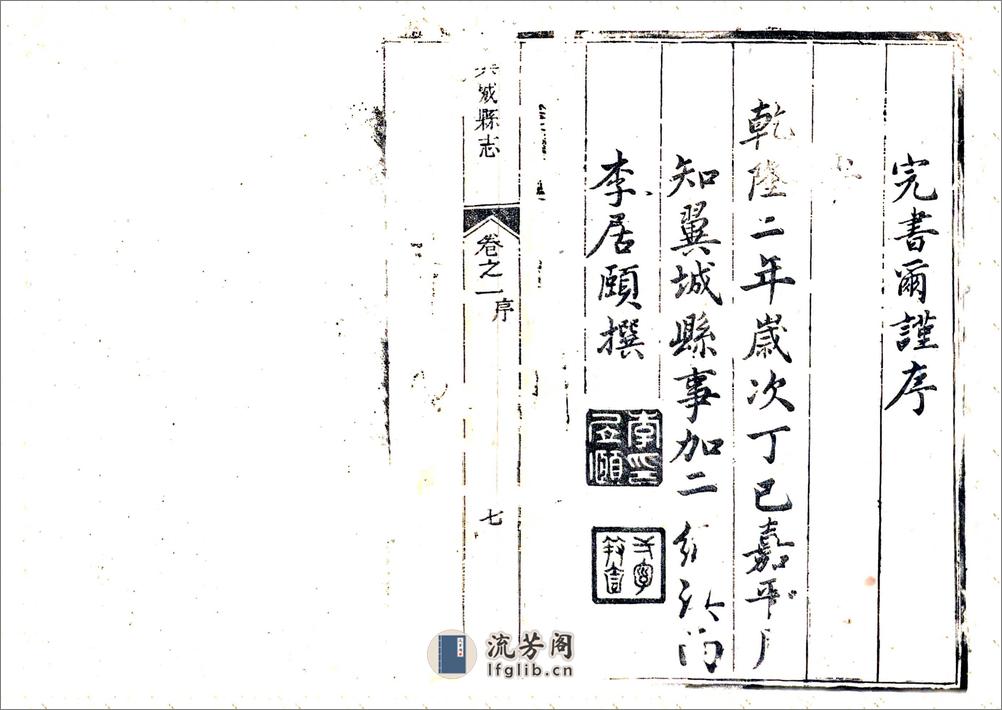 完書爾謹序
乾隆二年歲次丁巳嘉平月
知翼城縣事加二級
李居頤撰
李印居頤
城縣志
卷之一 序
七
流芳阁
lfglib.cn